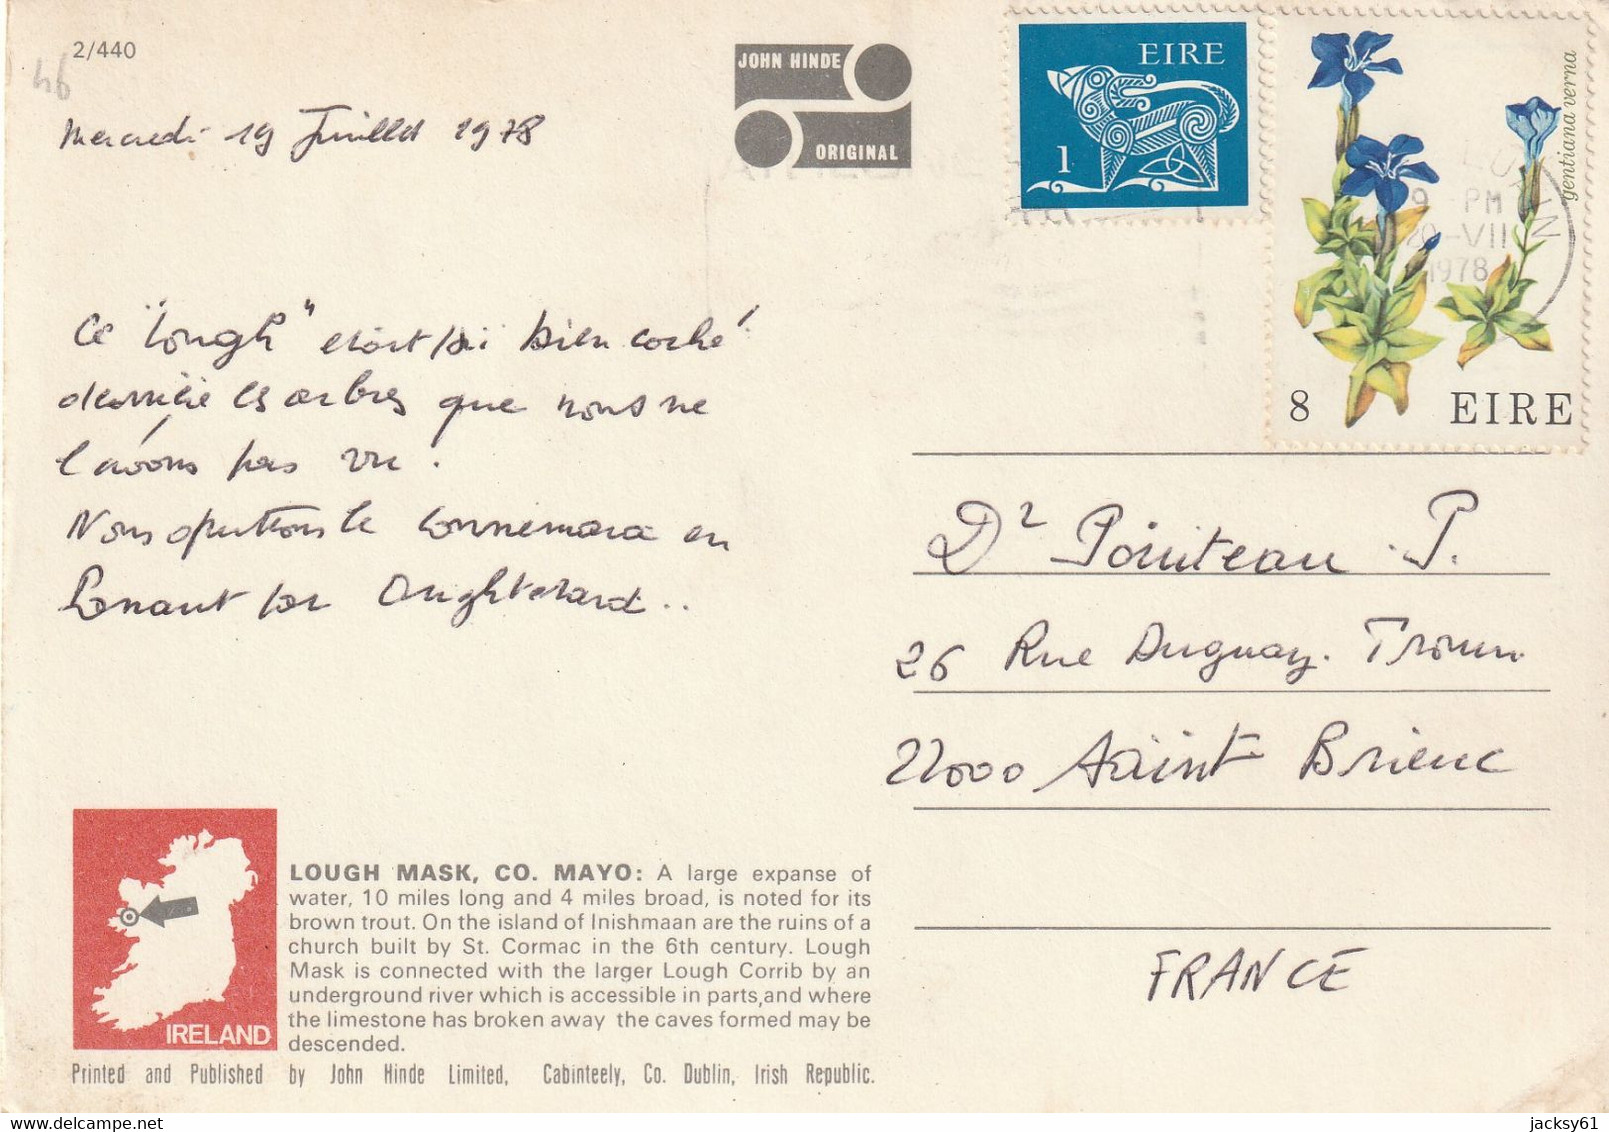 2/440
46
Mercredi 19 Juillet 1978
JOHN HINDE
ORIGINAL
EIRE
1
gentiana verna
LUAIN
9 PM
20-VII
1978
8 EIRE
Ce "Lough" était si bien caché
derrière les arbres que nous ne
l'avons pas vu.
Nous quittons le Connemara en
passant par Oughterard..
Dr Pointeau P.
26 Rue Duguay. Trouin
22000 Saint Brieuc
FRANCE
LOUGH MASK, CO. MAYO: A large expanse of
water, 10 miles long and 4 miles broad, is noted for its
brown trout. On the island of Inishmaan are the ruins of a
church built by St. Cormac in the 6th century. Lough
Mask is connected with the larger Lough Corrib by an
underground river which is accessible in parts,and where
the limestone has broken away the caves formed may be
descended.
IRELAND
Printed and Published by John Hinde Limited, Cabinteely, Co. Dublin, Irish Republic.
jacksy61